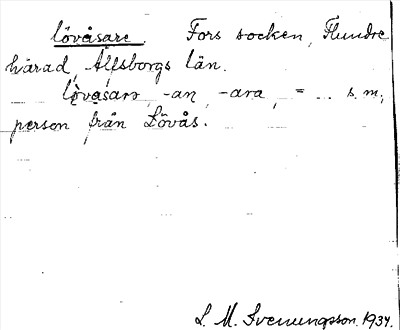 lövåsare. Fors socken, Flundre
härad, Älfsborgs län.
lòvasarə, -an, -ara, = ... s. m.,
person från Lövås.
L. M. Svenungsson. 1934.